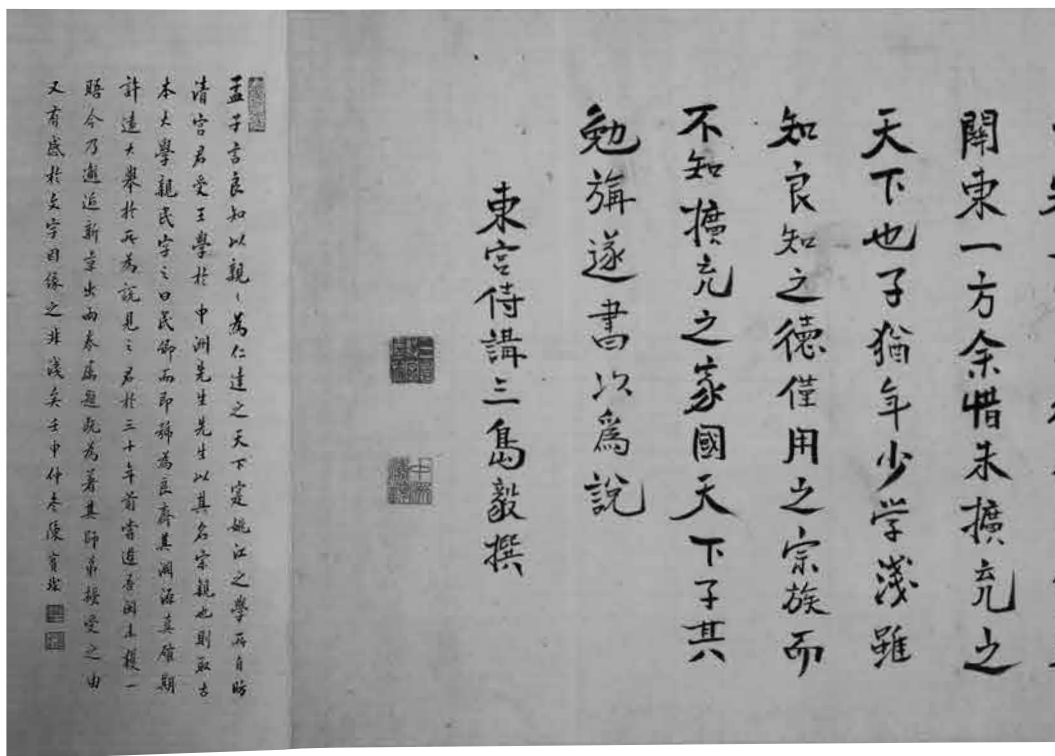 關東一方余惜未擴充之
天下也子猶年少学淺雖
知良知之德僅用之宗族而
不知擴充之家國天下子其
勉旃遂書以爲說
東宮侍講三島毅撰
孟子言良知以親〻為仁達之天下寔姚江之學所自昉
清宮君受王學於中洲先生先生以其名宗親也則取古
本大學親民字之曰民卿而即號為良齋其淵源真確期
許遠大舉於所為說見之君於三十年前嘗遊吾閩未獲一
晤今乃邂逅新京出兩卷屬題既為著其師弟授受之由
又有感於文字因缘之非淺矣壬申仲冬陳寶琛